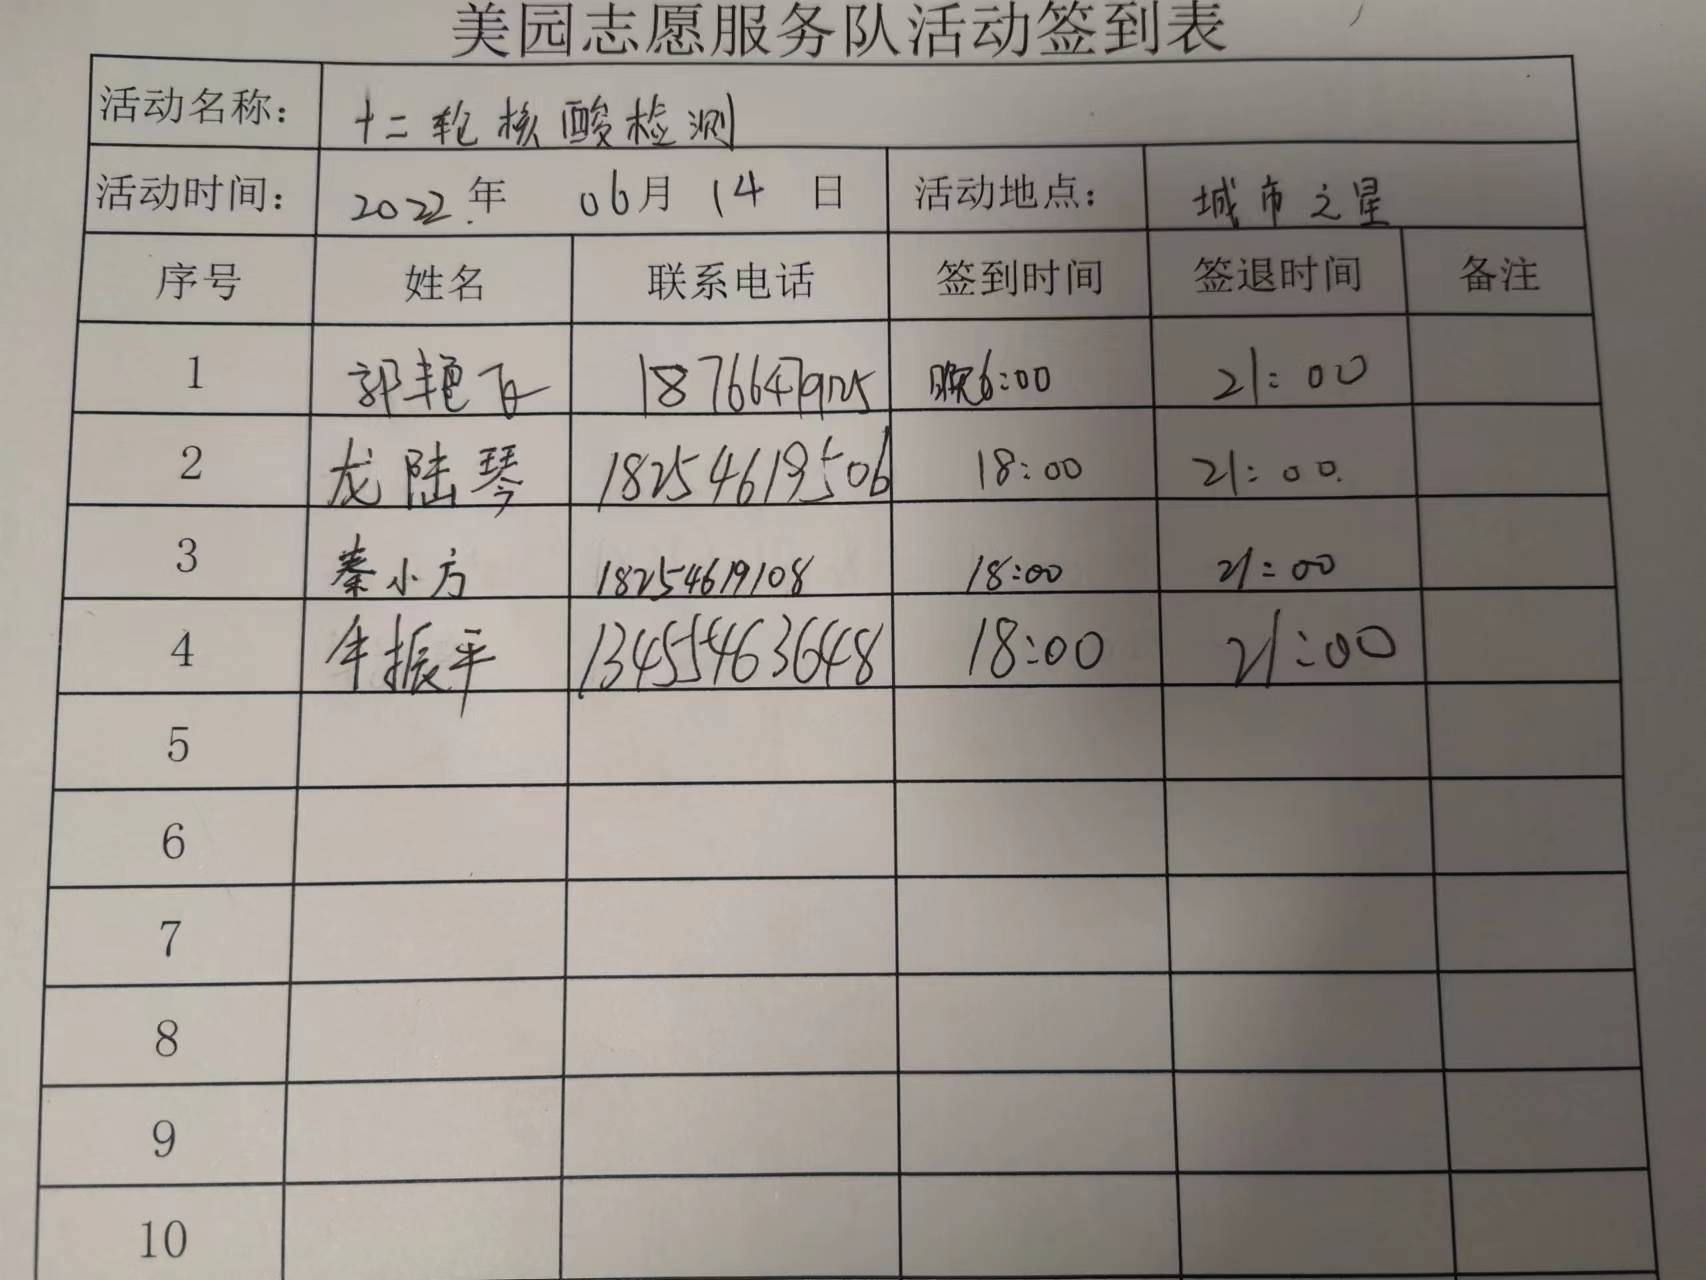 美园志愿服务队活动签到表
活动名称： 十二轮核酸检测
活动时间： 2022年 06月 14 日 活动地点： 城市之星
序号 姓名 联系电话 签到时间 签退时间 备注
1 郭艳飞 18766479125 晚6:00 21:00
2 龙陆琴 18254619506 18:00 21:00
3 秦小方 18254619108 18:00 21:00
4 牛振平 13455463648 18:00 21:00
5
6
7
8
9
10